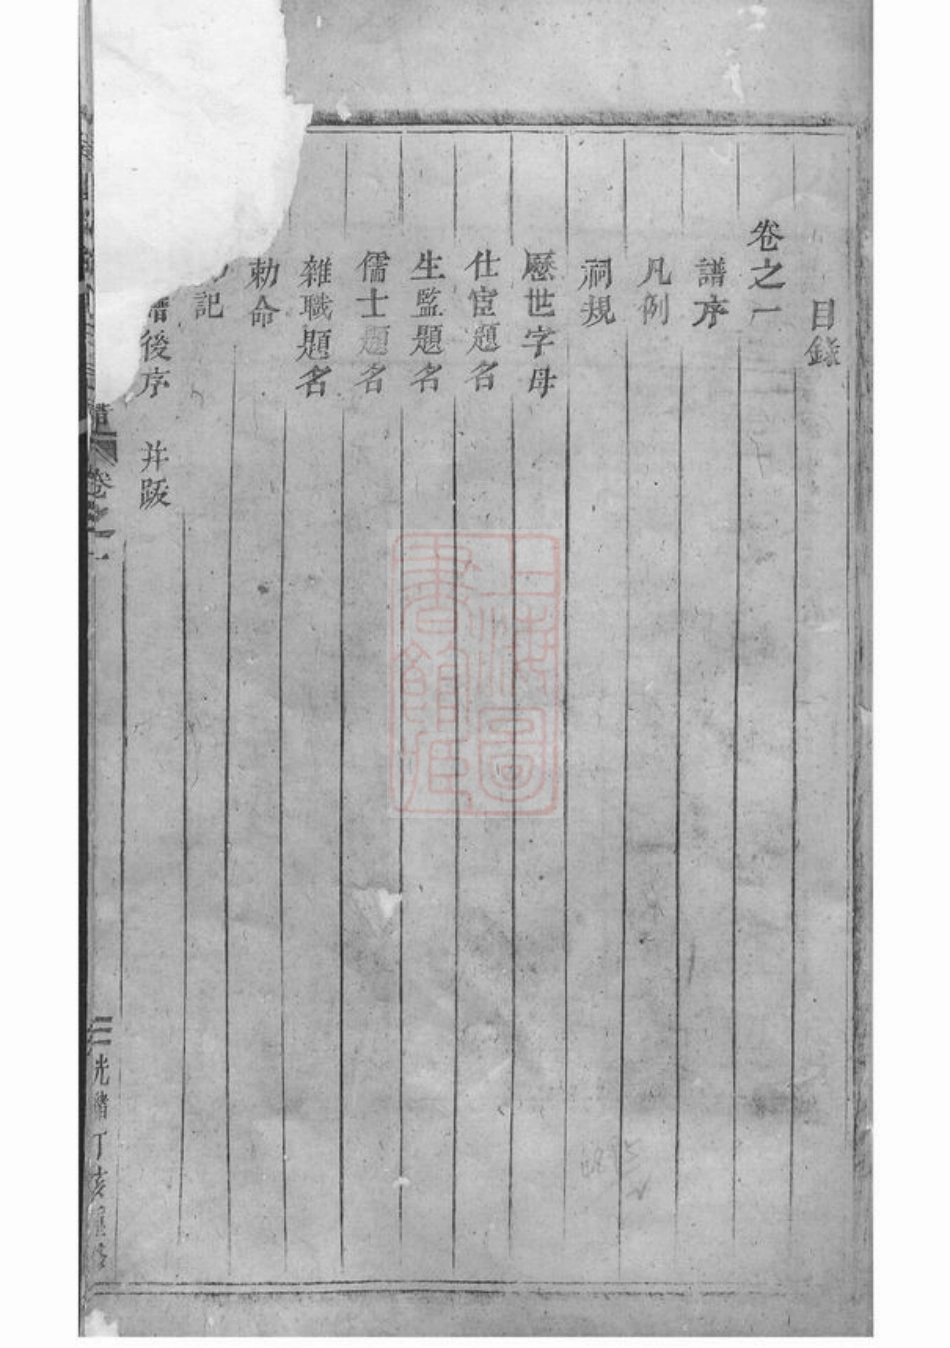 目錄
卷之一
譜序
凡例
祠規
歷世字母
仕宦題名
生監題名
儒士題名
雜職題名
勅命
記
譜後序 并跋
譜 卷之一 光緒丁亥
上海圖書館